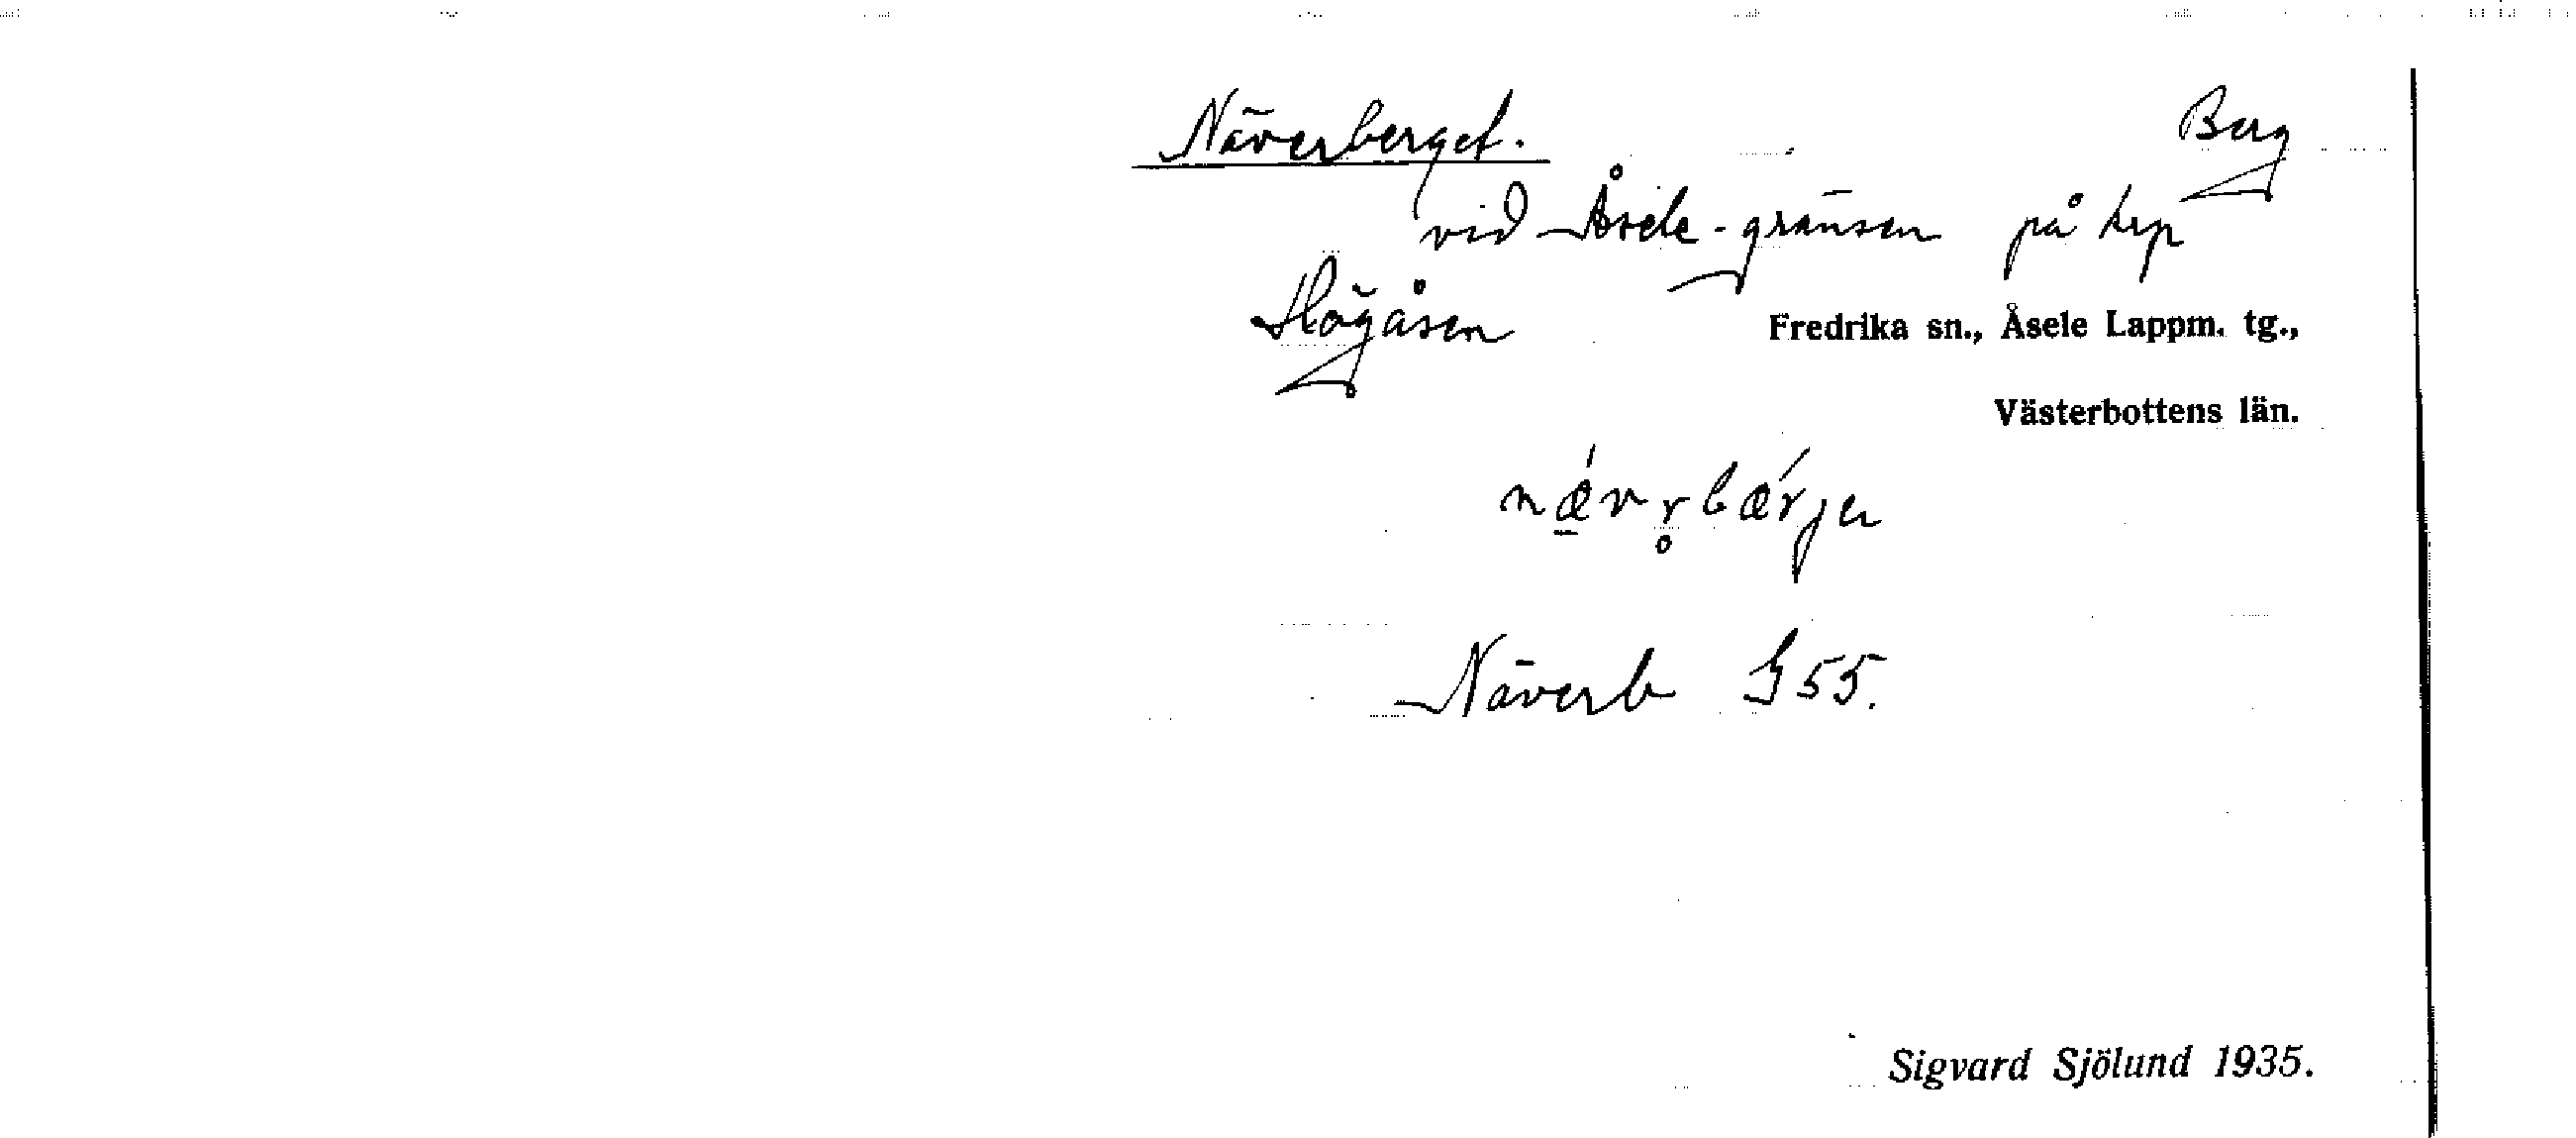 Näverberget. Berg
vid Åsele-gränsen på krp
Högåsen Fredrika sn., Åsele Lappm. tg.,
Västerbottens län.
nǽ̲vr̥bæŕjen
Näverb G 55.
Sigvard Sjölund 1935.